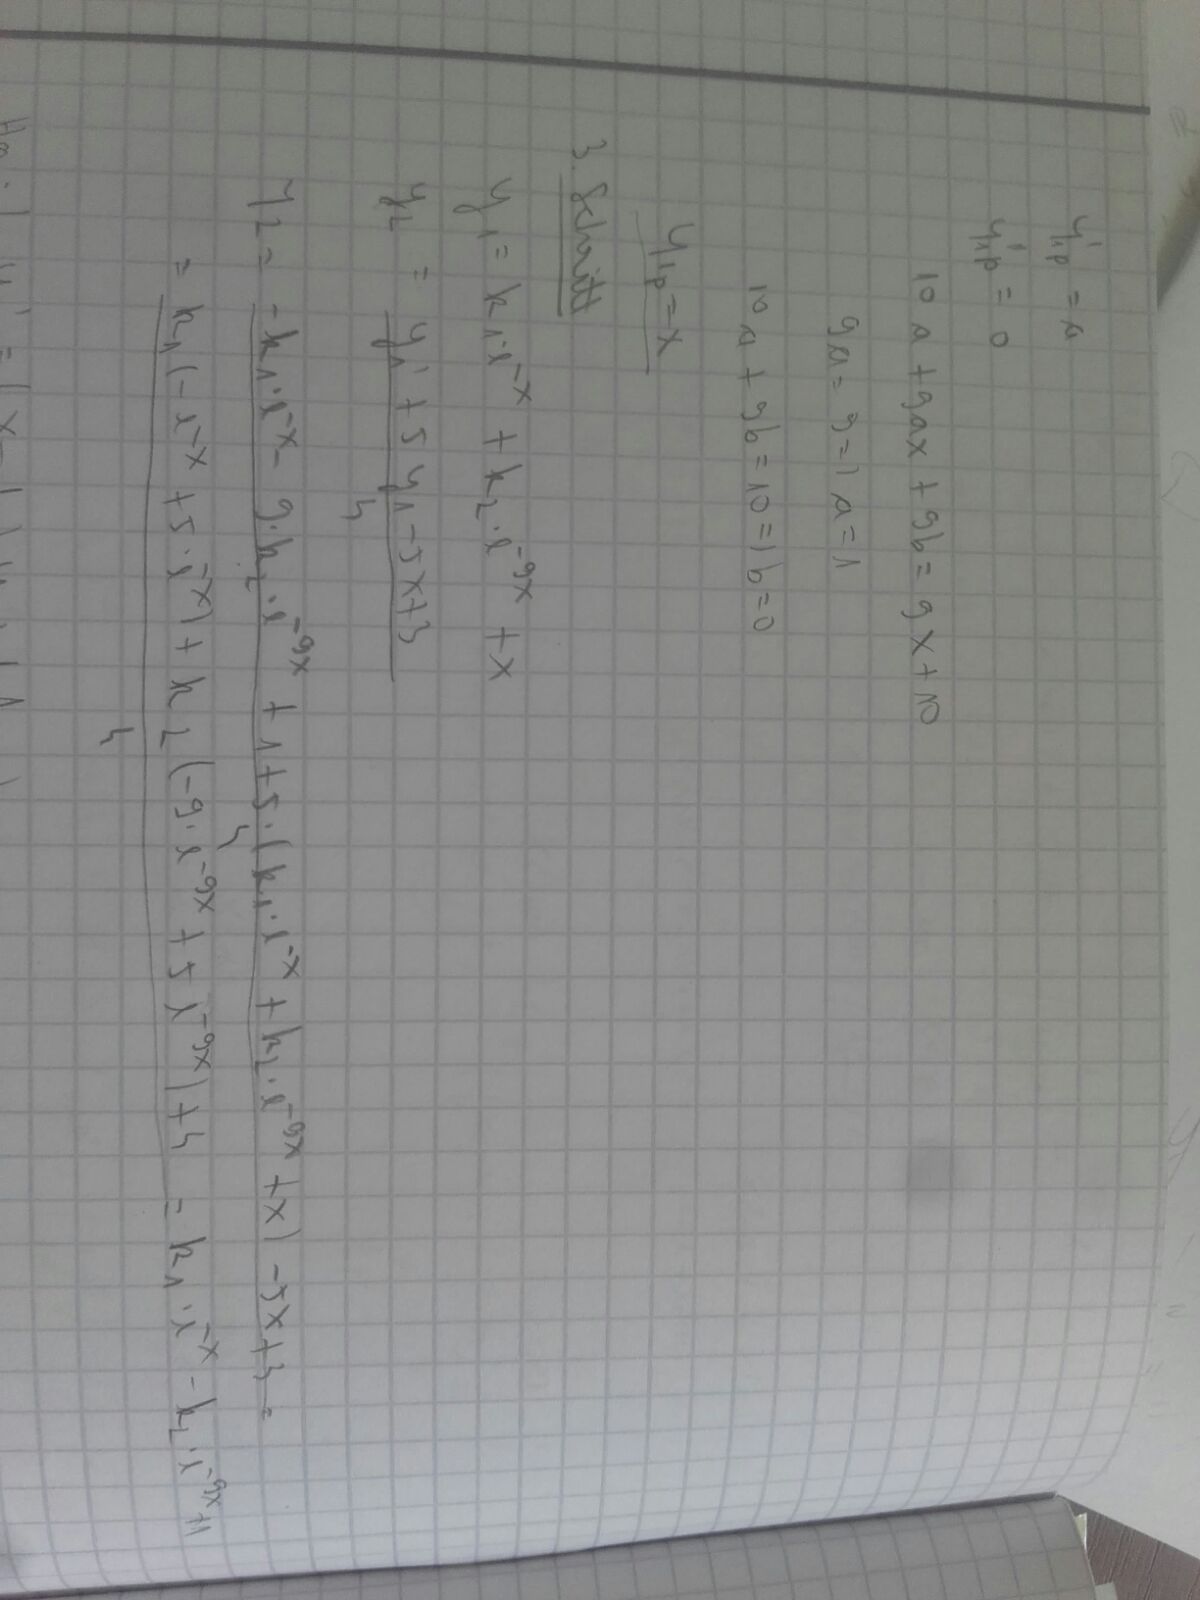 y₁p' = a
y₁p'' = 0
10 a + 9ax + 9b = 9x + 10
9a = 9 => a = 1
10 a + 9b = 10 => b = 0
y₁p = x
3. Schritt
y₁ = k₁·e^-x + k₂·e^-9x + x
y₂ = (y₁' + 5y₁ - 5x + 3) / 4
y₂ = (-k₁·e^-x - 9·k₂·e^-9x + 1 + 5·(k₁·e^-x + k₂·e^-9x + x) - 5x + 3) / 4 =
= (k₁(-e^-x + 5·e^-x) + k₂(-9·e^-9x + 5e^-9x) + 4) / 4 = k₁·e^-x - k₂·e^-9x + 1